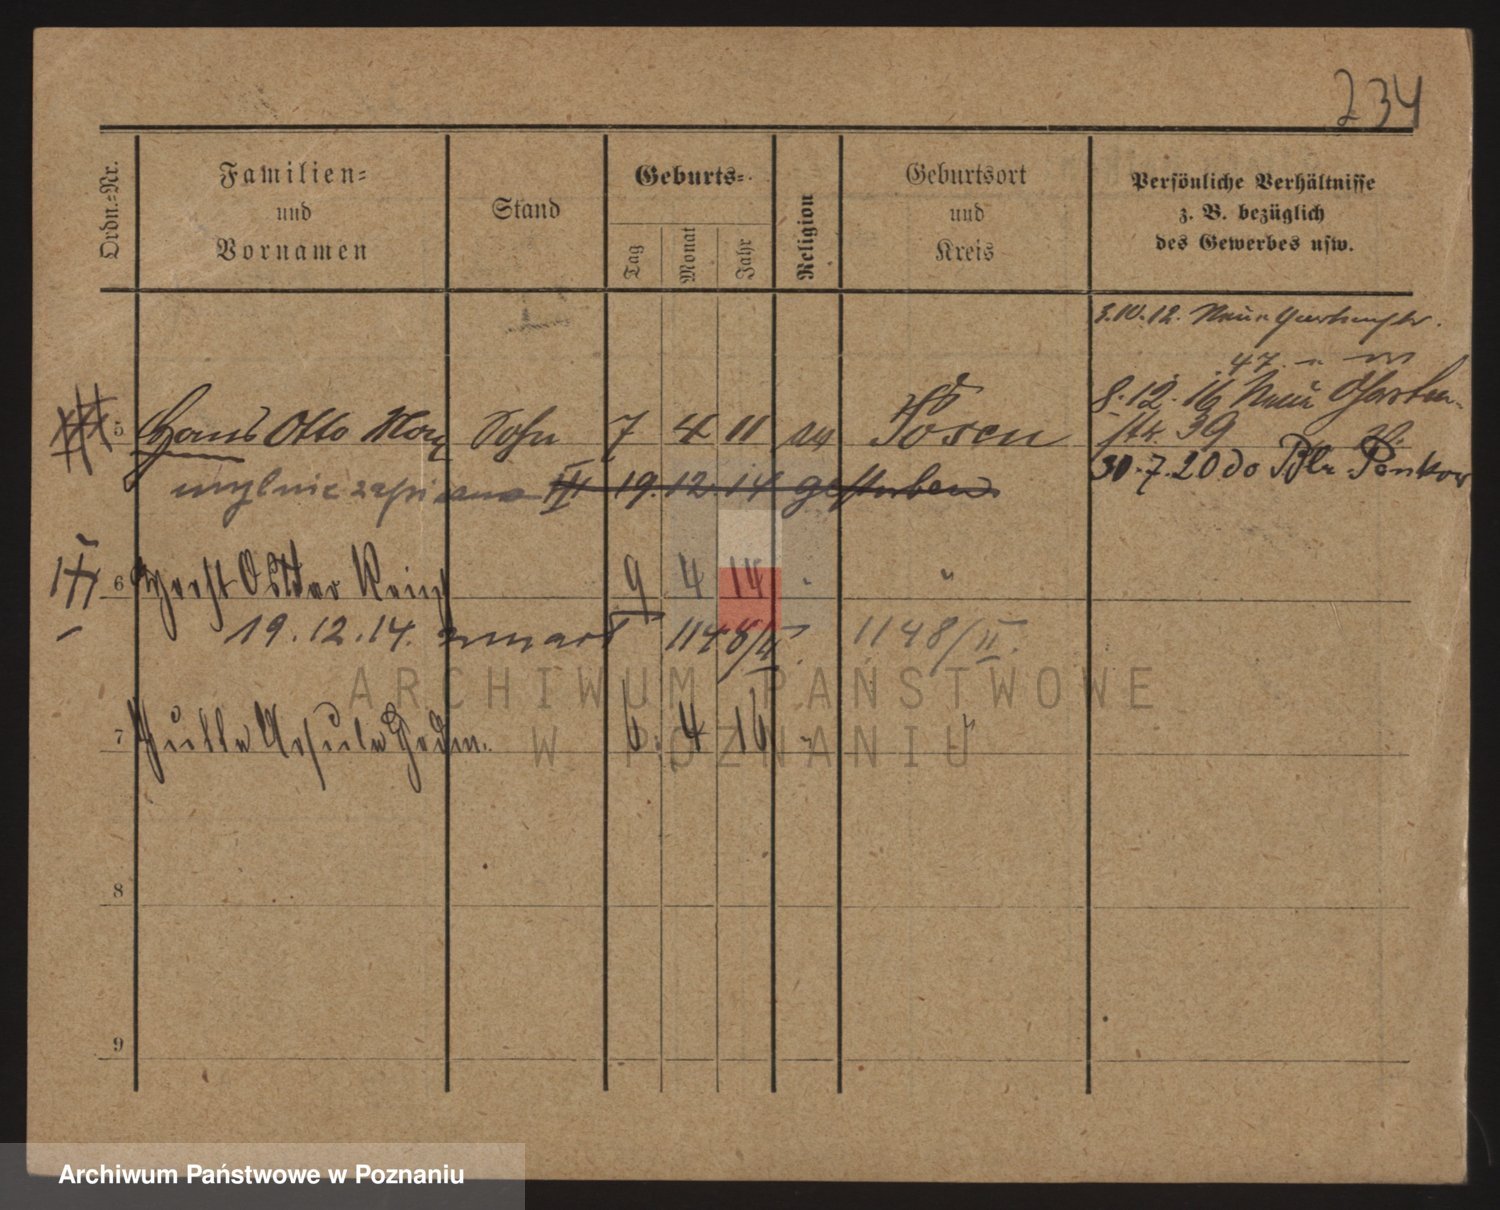 234
Ordn.=Nr.
Familien=
und
Vornamen
Stand
Geburts=
Tag
Monat
Jahr
Religion
Geburtsort
und
Kreis
Persönliche Verhältnisse
z. B. bezüglich
des Gewerbes usw.
3.10.12. Neue
47.
5 Hans Otto Sohn 7 4 11 Posen
8.12.16 Neue Garten-
str. 39
mylnie zapisano III 19.12.14 gestorben
30.7.20 do Bln Pankow
6 Horst 9 4 14 "
19.12.14. zmarł 1148/II. 1148/II.
7 Ursula 6. 4 16 "
8
9
ARCHIWUM PAŃSTWOWE
W POZNANIU
Archiwum Państwowe w Poznaniu